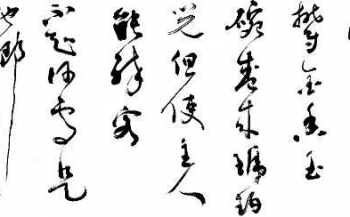 鬱金香玉
碗盛来琥珀
光但使主人
能醉客
不知何處是
他鄉